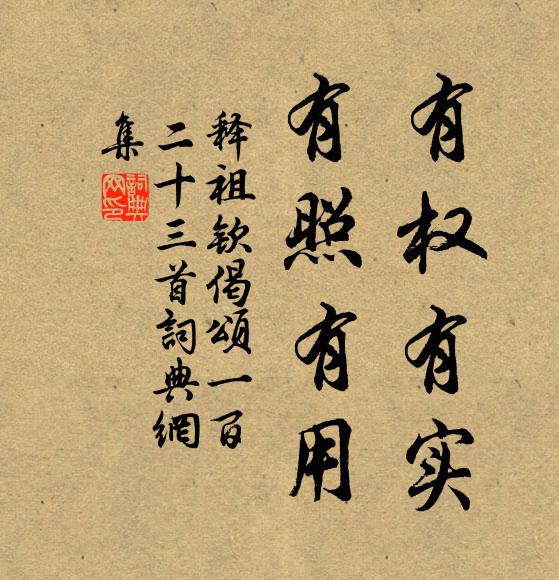 有权有实
有照有用
释祖钦偈頌一百
二十三首詞典網
集
詞典網印